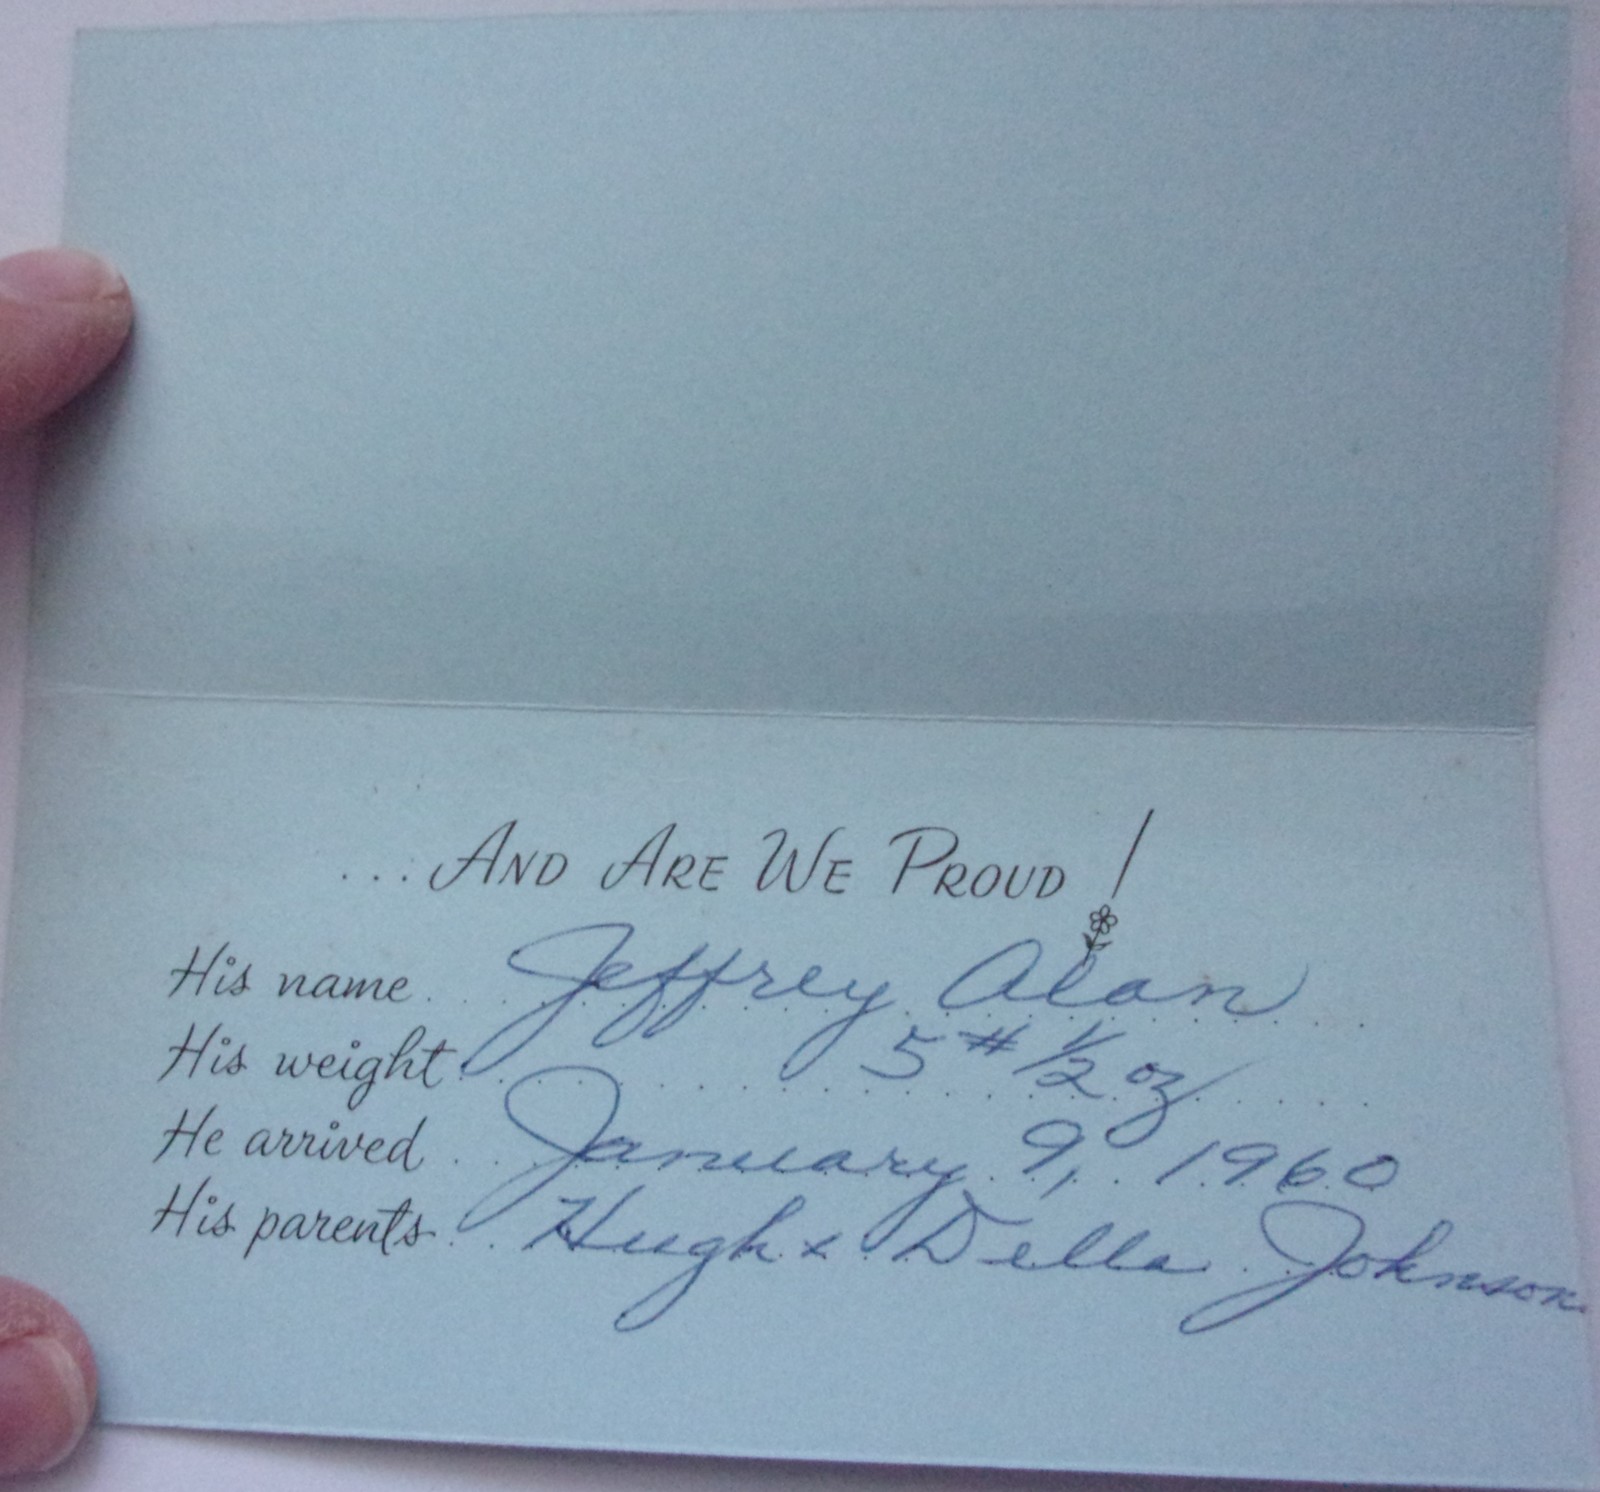 ...And Are We Proud!
His name... Jeffrey Alan
His weight... 5# 1/2 oz
He arrived... January 9, 1960
His parents... Hugh & Della Johnson